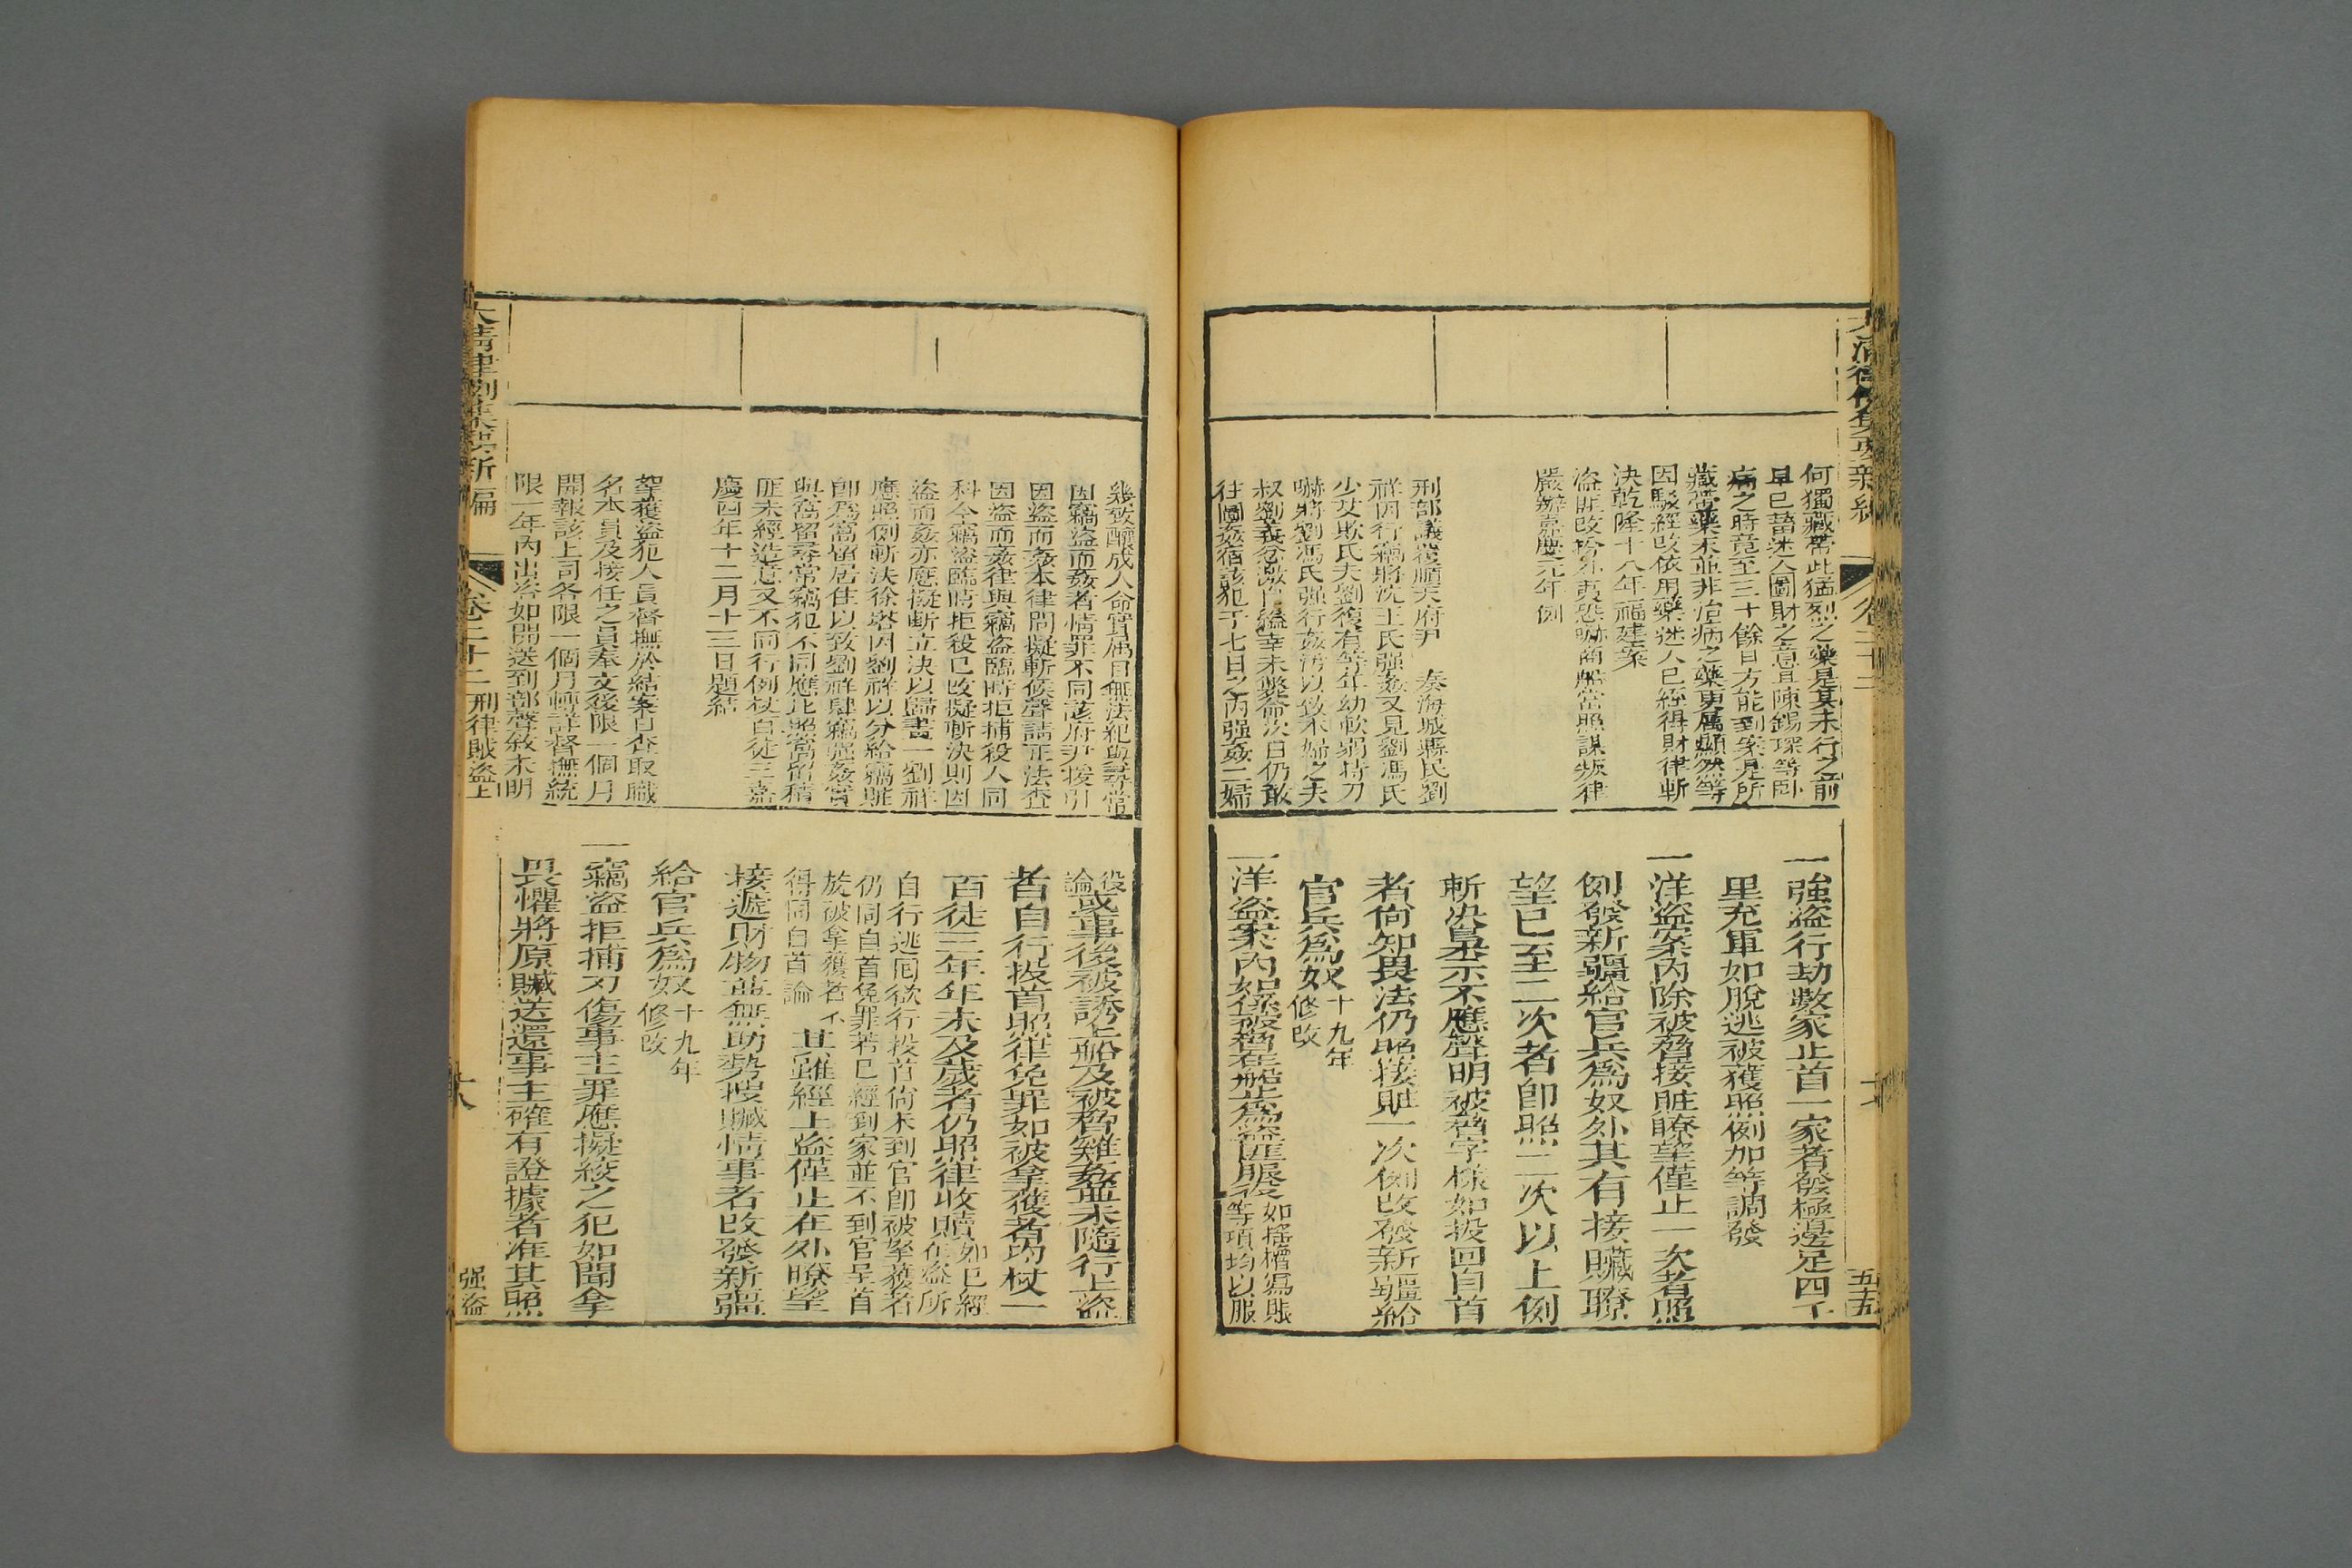 何獨藏帶此猛烈之藥是其未行之前
早已蓄迷人圖財之意且陳錫琛等卧
病之時竟至三十餘日方能到案是所
藏帶藥末並非治病之藥更屬顯然等
因駁經改依用藥迷人已經得財律斬
決乾隆十八年福建案
盜匪改扮外夷恐嚇商船當照謀叛律
嚴辦嘉慶元年例
刑部議覆順天府尹 奏海城縣民劉
祥因行竊將沈王氏强姦又見劉馮氏
少艾欺氏夫劉復有等年幼軟弱持刀
嚇將劉馮氏强行姦污以致本婦之夫
叔劉義忿激自縊幸未斃命次日仍敢
往圖姦宿該犯于七日之內强姦二婦
一強盜行劫數家止首一家者發極邊足四千
里充軍如脫逃被獲照例加等調發
一洋盜案內除被脅接賍瞭望僅止一次者照
例發新疆給官兵爲奴外其有接贓瞭
望已至二次者卽照二次以上例
斬決梟示不應聲明被脅字樣如投回自首
者尙知畏法仍照接賍一次例改發新疆給
官兵爲奴十九年修改
一洋盜案內如係被脅在船止爲盜匪服役如搖櫓寫賬等項均以服
五十五
幾致釀成人命實屬目無法紀與尋常
因竊盜而姦者情罪不同該府尹援引
因盜而姦本律問擬斬候聲請正法查
因盜而姦律與竊盜臨時拒捕殺人同
科今竊盜臨時拒殺已改擬斬決則因
盜而姦亦應擬斬立決以歸畫一劉祥
應照例斬決徐塔因劉祥以分給竊賍
卽爲窩留居住以致劉祥肆竊强姦實
與窩留尋常竊犯不同應比照窩留積
匪未經造意又不同行例杖百徒三嘉
慶四年十二月十三日題結
拏獲盜犯人員督撫於結案日查取職
名本員及接任之員奉文後限一個月
開報該上司各限一個月轉詳督撫統
限一年內出咨如開送到部聲敘未明
役論或事後被誘上船及被脅雞姦並未隨行上盜
者自行投首照律免罪如被拿獲者均杖一
百徒三年年未及歲者仍照律收贖如已經在盜所
自行逃囘欲行投首尙未到官卽被拏獲者
仍同自首免罪若已經到家並不到官呈首
旋被拿獲者不得同自首論其雖經上盜僅止在外瞭望
接遞財物並無助勢搜贓情事者改發新疆
給官兵爲奴十九年修改
一竊盜拒捕刃傷事主罪應擬絞之犯如聞拿
畏懼將原贓送還事主確有證據者准其照
大清律例集要新編
卷二十二 刑律賊盜上
强盜